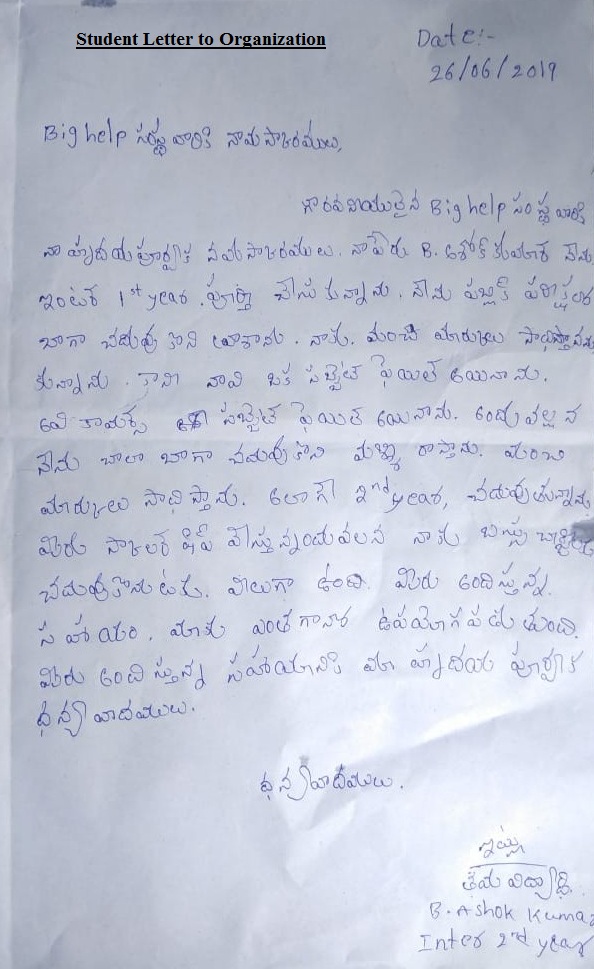 Student Letter to Organization
Date:-
26/06/2019
Big help సంస్థ వారికి నామస్కారములు,
గౌరవనీయులైన Big help సంస్థ వారికి
నా హృదయపూర్వక నమస్కారములు. నాపేరు B. అశోక్ కుమార్ నేను
ఇంటర్ 1st year. పూర్తి చేసుకున్నాను. నేను పబ్లిక్ పరీక్షలకు
బాగా చదువుకొని రాశాను. నాకు. మంచి మార్కులు సాధిస్తానను
కున్నాను. కాని నావి ఒక సబ్జెట్ ఫెయిల్ అయినాను.
అవి కామర్స్ సబ్జెట్ ఫెయిల్ అయినాను. అందువల్ల న
నేను చాలా బాగా చదువుకొని మళ్ళి రాస్తాను. మంచి
మార్కులు సాధిస్తాను. అలాగే 2nd year, చదువుతున్నాను
మీరు స్కాలర్ షిప్ చేస్తున్నందువలన నాకు బస్సు
చదువుకొనుటకు. వీలుగా ఉంది. మీరు అందిస్తున్న.
సహాయం. మాకు ఎంతగానో ఉపయోగపడుతుంది.
మీరు అందిస్తున్న సహాయానికి మా హృదయ పూర్వక
ధన్యవాదములు.
ధన్యవాదములు.
ఇట్లు
తమ విద్యార్థి.
B. Ashok Kumar
Inter 2nd year